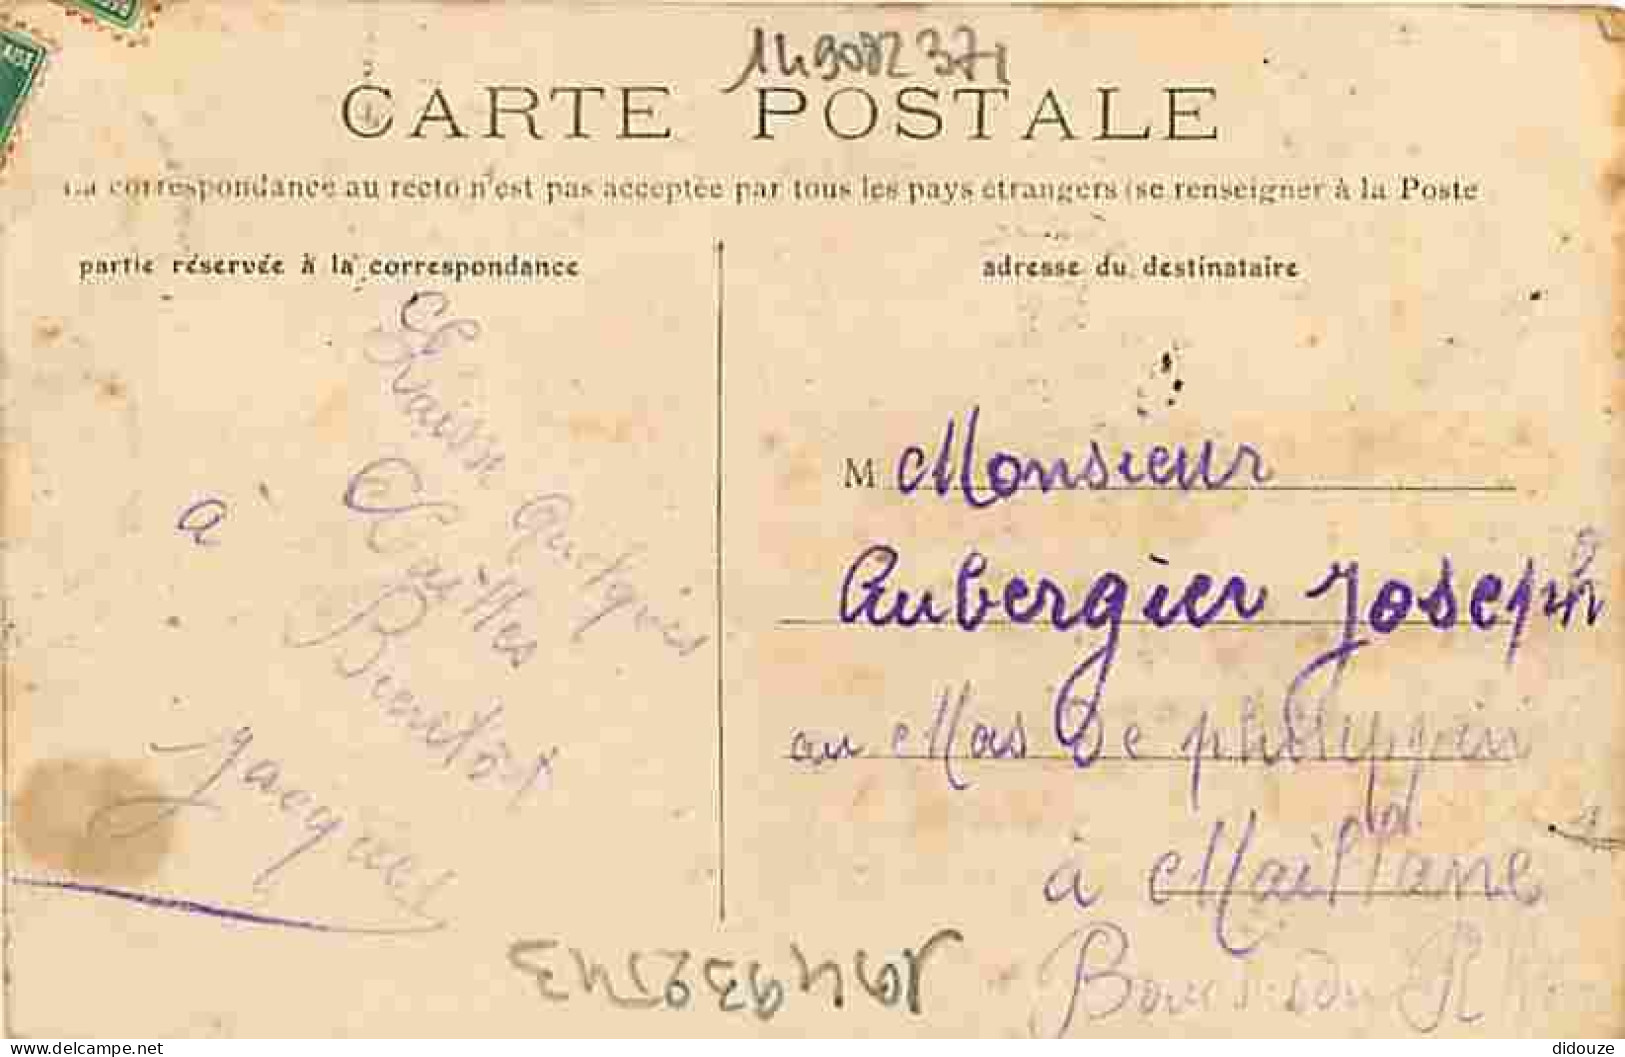 149082371
CARTE POSTALE
La correspondance au recto n'est pas acceptée par tous les pays étrangers (se renseigner à la Poste
partie réservée à la correspondance
adresse du destinataire
à
Bientot
Jacques
M Monsieur
Aubergier Joseph
au Mas de
à Maillane
Bouches du R
delcampe.net
didouze